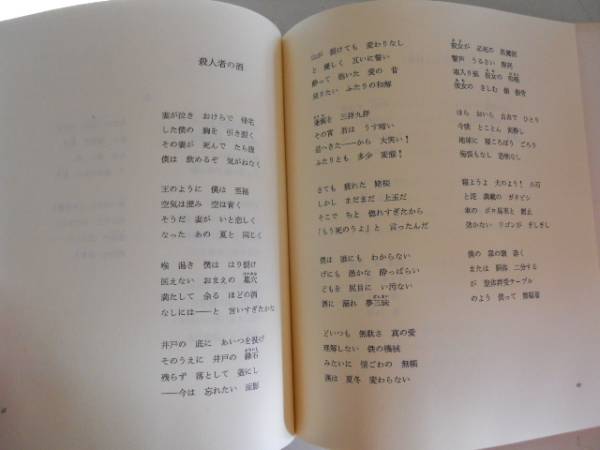 殺人者の酒
妻が泣き おけらで 帰宅
した僕の 胸を 引き裂く
その妻が 死んで たら腹
僕は 飲めるぞ 気がねなく
王のように 僕は 至福
空気は澄み 空は青く
そうだ 妻が いと恋しく
なった あの 夏と 同じく
喉 渇き 僕は はり裂け
医えない おまえの 墓穴
満たして 余る ほどの酒
なしには——と 言いすぎたかな
井戸の 底に あいつを投げ
そのうえに 井戸の 縁石
残らず 落として 蓋にし
——今は 忘れたい
が 裂けても 変わりなし
と 優しく 互いに誓い
酔って 抱いた 愛の 昔
戻りたい ふたりの和解
を 三拝九拝
その宵 君は うす暗い
辺へきた——から 大笑い!
ふたりとも 多少 変態!
さても 疲れた 姥桜
しかし まだまだ 上玉だ
そこで ちと 惚れすぎたから
「もう死のうよ」と 言ったんだ
僕は 誰にも わからない
げにも 愚かな 酔っぱらい
どもを 尻目に い汚い
酒に 溺れ 夢三昧
どいつも 倒獣さ 真の愛
理解しない 鉄の機械
みたいに 信ごわの 無頼
漢は 夏冬 変わらない
彼女が 必死の 悪魔祓
警声 うるさい 葬列
毒入り瓶 彼女の
彼女の きしむ 鎖 骸骨
ほら おいら 自由で ひとり
今夜 とことん 泥酔し
地球に 寝ころぼう ごろり
悔恨もなし 恐怖なし
寝ようよ 犬のよう! 小石
と泥 満載の ガタピシ
車の ボロ馬車と 制止
効かない ワゴンが ぎしぎし
僕の 罪の頭 砕く
または 胴体 二分する
が 聖体拝受テーブル
のよう 僕って 無騒着